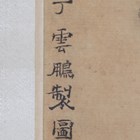 丁雲鵬製圖